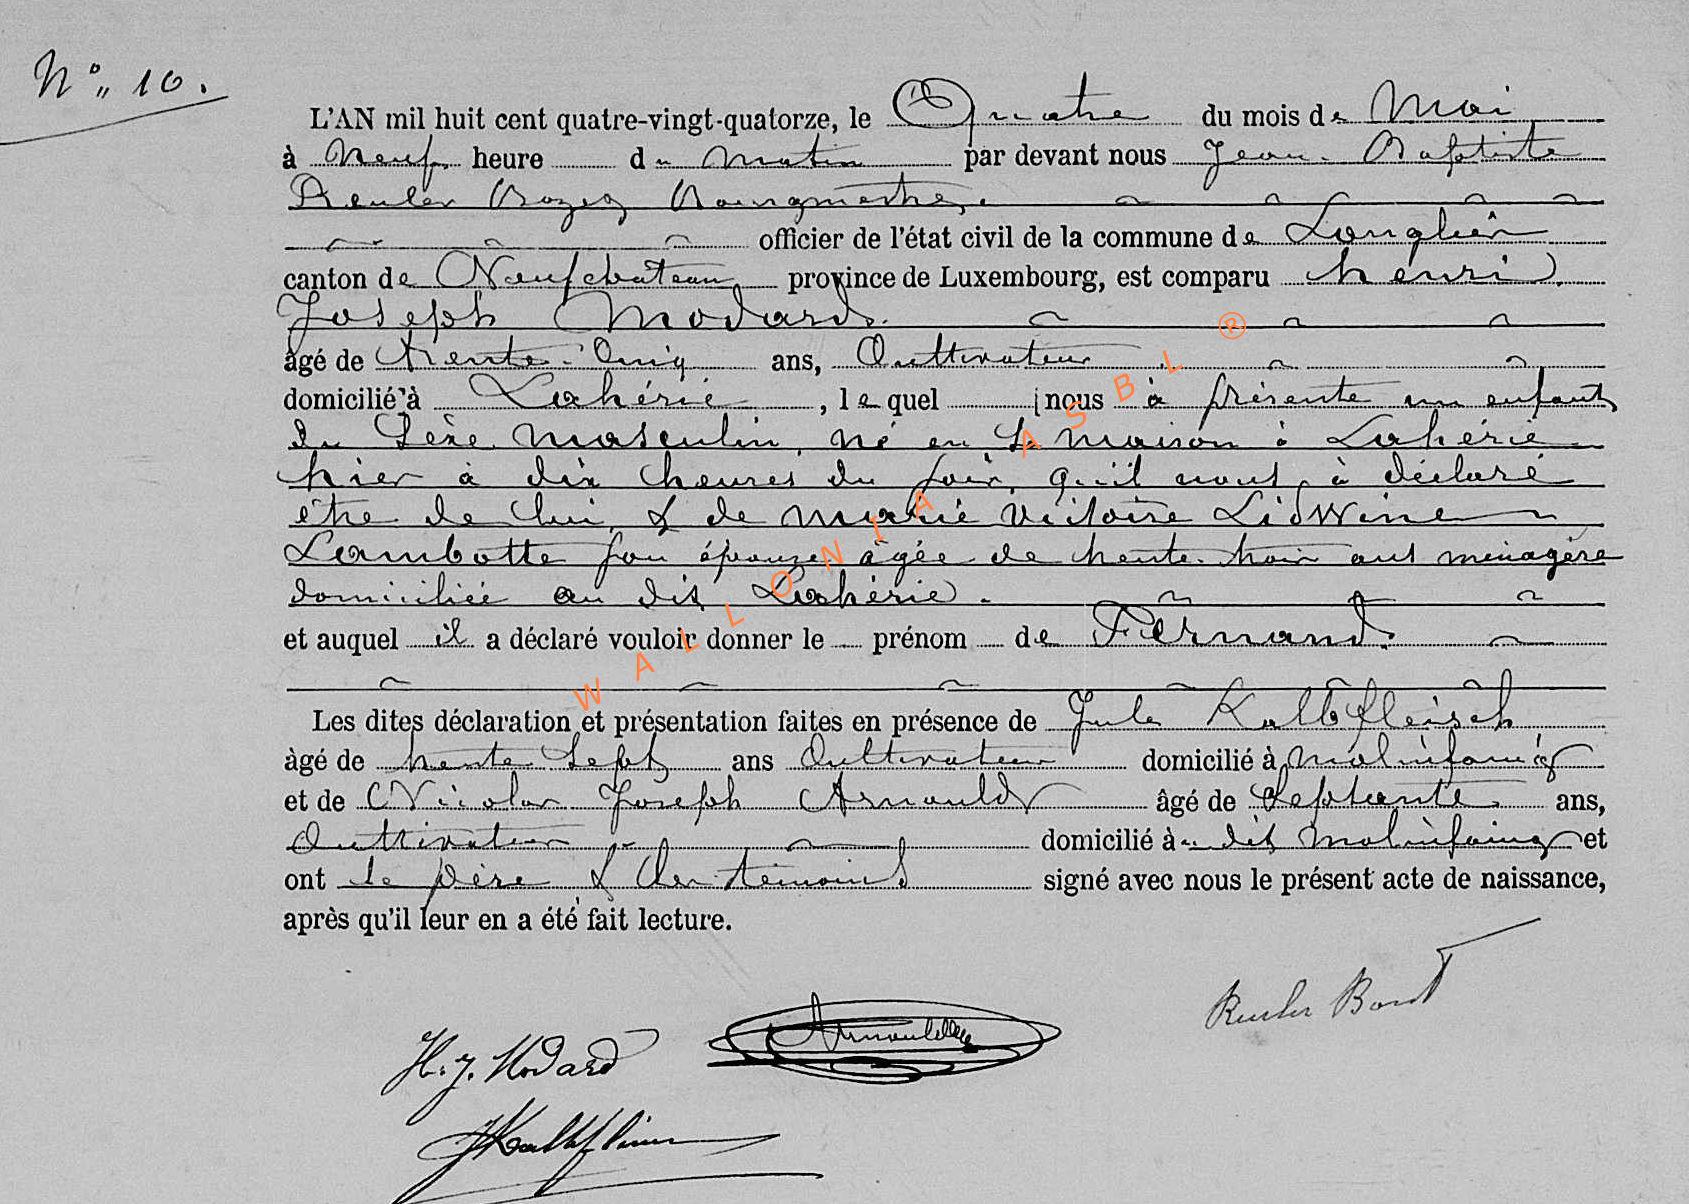 N° 10.
L'AN mil huit cent quatre-vingt-quatorze, le Quatre du mois de Mai
à Neuf heure du matin par devant nous Jean Baptiste
Reuler Bourgmestre
officier de l'état civil de la commune de Longlier
canton de Neufchateau province de Luxembourg, est comparu henri
Joseph Modard.
âgé de trente Cinq ans, Cultivateur
domicilié à Lahérie, lequel nous à présenté un enfant
du Sexe masculin, né en sa maison à Lahérie
hier à dix heures du soir, qu'il nous à déclaré
être de lui & de marie Victoire Lidwine
Lambotte son épouze âgée de trente trois ans ménagère
domiciliée au dit Lahérie.
et auquel il a déclaré vouloir donner le prénom de Fernand.
Les dites déclaration et présentation faites en présence de Jules Kalbfleisch
âgé de trente Sept ans Cultivateur domicilié à molinfaing
et de Nicolas Joseph Arnould âgé de Septante ans,
Cultivateur domicilié au dit molinfaing et
ont le père & les témoins signé avec nous le présent acte de naissance,
après qu'il leur en a été fait lecture.
H. J. Modard
Arnould
Reuler
WALLONIA ASBL ®